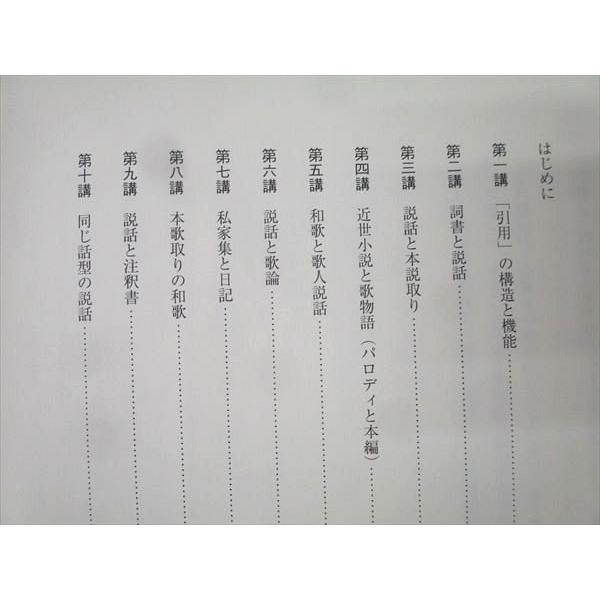 はじめに
第一講 「引用」の構造と機能
第二講 詞書と説話
第三講 説話と本説取り
第四講 近世小説と歌物語（パロディと本編）
第五講 和歌と歌人説話
第六講 説話と歌論
第七講 私家集と日記
第八講 本歌取りの和歌
第九講 説話と注釈書
第十講 同じ話型の説話